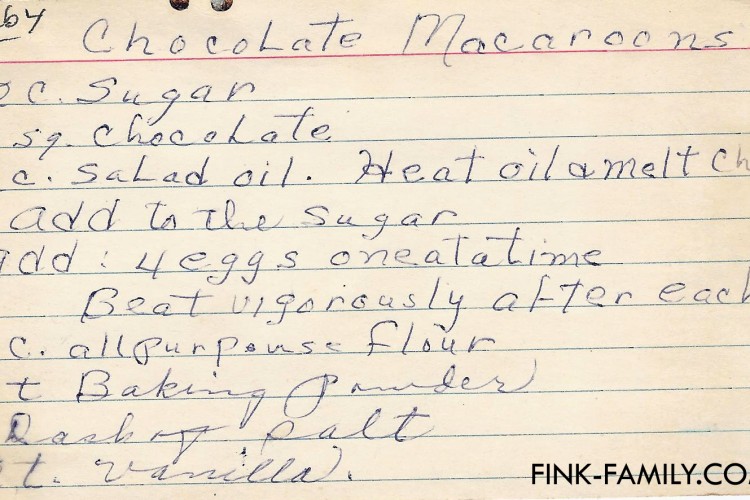 64
Chocolate Macaroons
c. Sugar
sq. chocolate
c. salad oil. Heat oil & melt ch
add to the sugar
add: 4 eggs one at a time
Beat vigorously after each
c. all purpouse flour
t Baking Powder
Dash of salt
t. vanilla.
FINK-FAMILY.CO